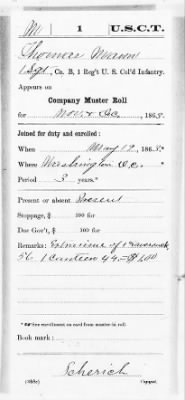 M | 1 | U.S.C.T.
Thomas Mason
1 Sgt, Co. B, 1 Reg't U. S. Col'd Infantry.
Appears on
Company Muster Roll
for Nov. & Dec., 1863.
Joined for duty and enrolled:
When May 19, 1863.
Where Washington D.C.
Period 3 years.*
Present or absent Present
Stoppage, $ 100 for
Due Gov't, $ 100 for
Remarks: 1 haversack
56 1 Canteen 44 = $1.00
* See enrollment on card from muster-in roll.
Book mark:
Scherich
(358c) Copyist.